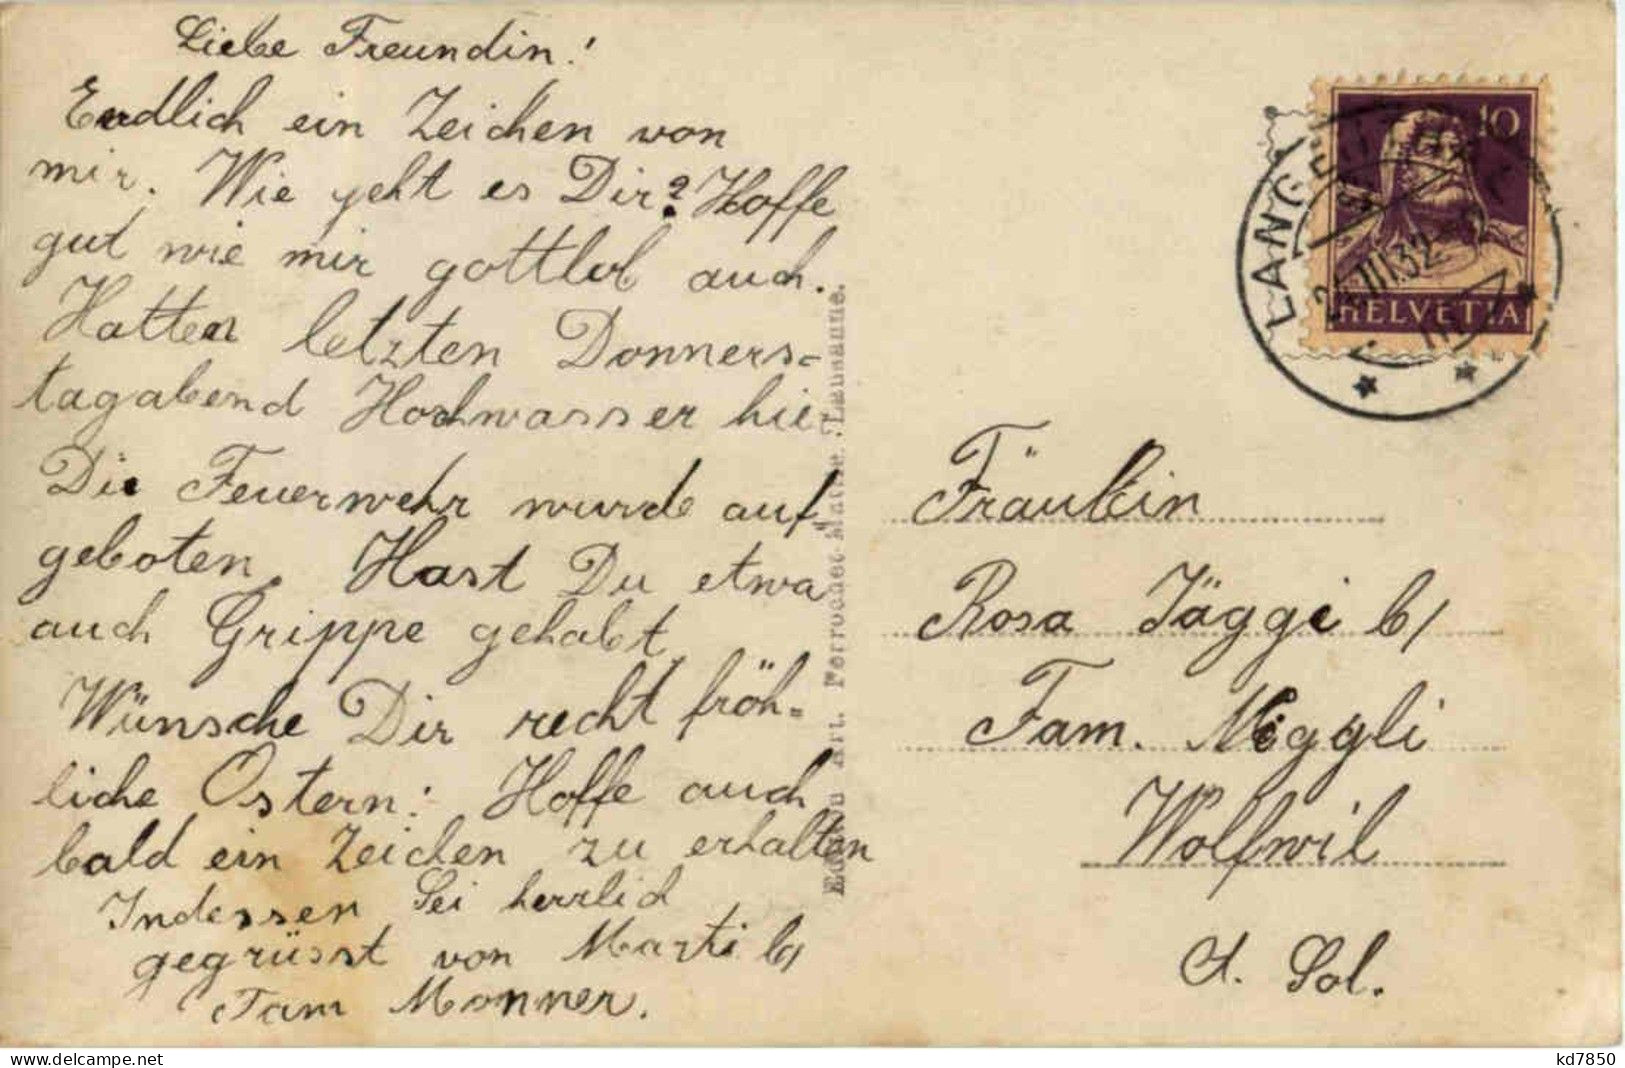 Liebe Freundin!
Endlich ein Zeichen von
mir. Wie geht es Dir? Hoffe
gut wie mir gottlob auch.
Hatten letzten Donners=
tagabend Hochwasser hie
Die Feuerwehr wurde auf=
geboten. Hast Du etwa
auch Grippe gehabt
Wünsche Dir recht fröh=
liche Ostern: Hoffe auch
bald ein Zeichen zu erhalten
Indessen Sei herzlich
gegrüsst von Marti b/
Fam Monner.
Art. Perrochet-Matile, Lausanne.
10
HELVETIA
III.32
Fräulein
Rosa Jäggi b/
Fam. Niggli
Wolfwil
Ct. Sol.
kd7850